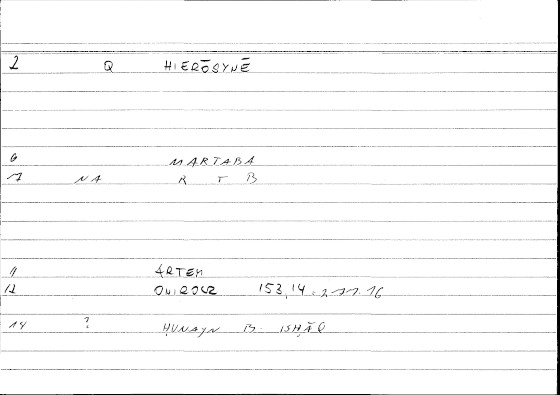 2 Q HIERŌSYNĒ
6 MARTABA
7 NA R T B
11 ARTEM
12 ONIROCR 153,14 = 277.16
14 ? ḤUNAYN B. ISḤĀQ